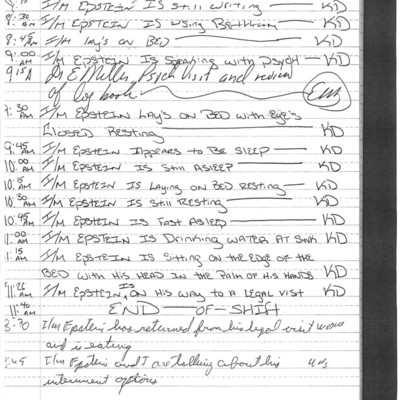 8:15 I/M EPSTEIN IS STILL WRITING — KD
8:30 AM I/M EPSTEIN IS USING BATHROOM — KD
8:45 AM I/M lay's ON BED — KD
9:00 AM I/M EPSTEIN IS SPEAKING WITH PSYCH — KD
9:15A Dr E Miller, Psych Visit and review
of log book
9:30 AM I/M EPSTEIN LAY'S ON BED WITH EYE'S
CLOSED RESTING — KD
9:45 AM I/M EPSTEIN APPEARS TO BE SLEEP — KD
10:00 AM I/M EPSTEIN IS STILL ASLEEP — KD
10:15 AM I/M EPSTEIN IS LAYING ON BED RESTING — KD
10:30 AM I/M EPSTEIN IS STILL RESTING — KD
10:45 AM I/M EPSTEIN IS FAST ASLEEP — KD
11:00 AM I/M EPSTEIN IS DRINKING WATER AT SINK KD
11:15 AM I/M EPSTEIN IS SITTING ON THE EDGE OF THE
BED WITH HIS HEAD IN THE PALM OF HIS HANDS KD
11:26 AM I/M EPSTEIN, IS ON HIS WAY TO A LEGAL VISIT KD
11:40 AM END — OF — SHIFT
I/m Epstein has returned from his legal visit
and is eating
:45 I/m Epstein and I are talking about his
internment options